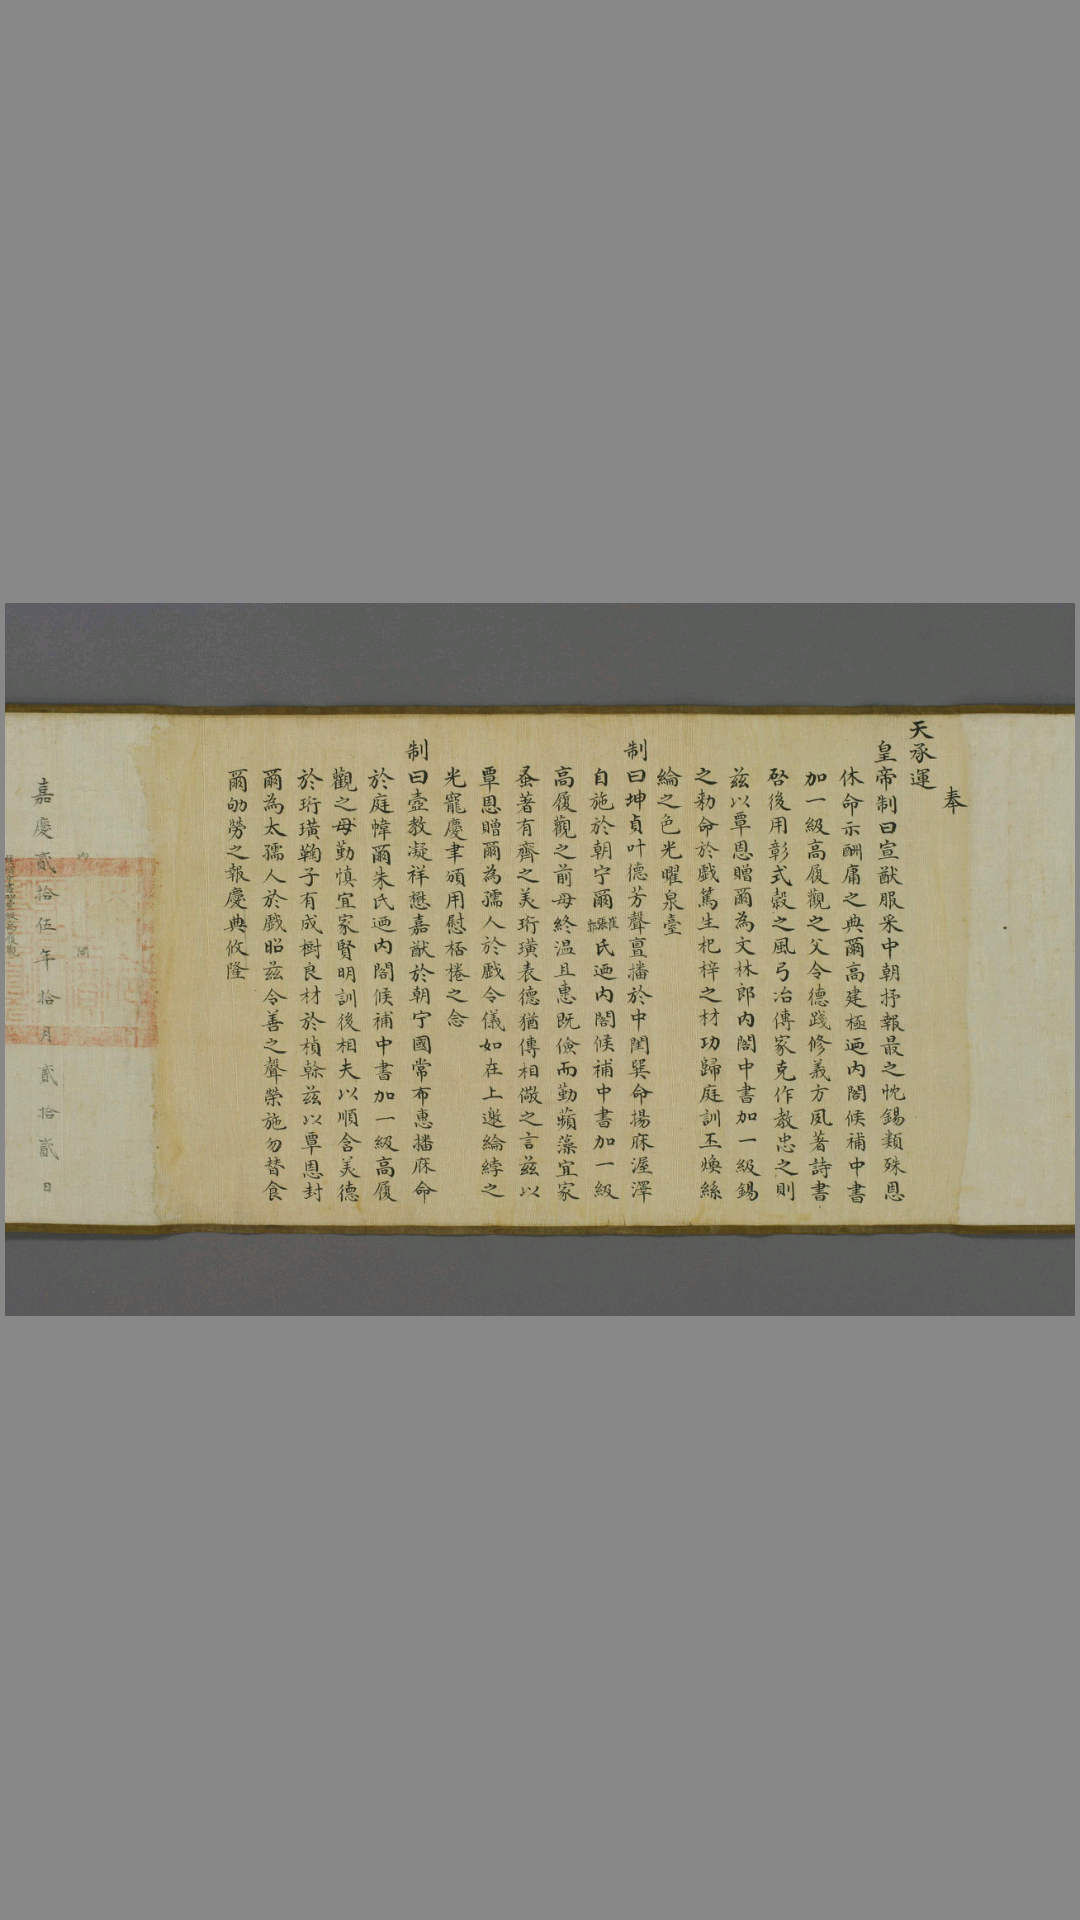 奉
天承運
皇帝制曰宣猷服采中朝抒報最之忱錫類殊恩
休命示酬庸之典爾高建極迺內閣候補中書
加一級高履觀之父令德踐修義方夙著詩書
啓後用彰式穀之風弓冶傳家克作教忠之則
茲以覃恩贈爾為文林郎內閣中書加一級錫
之勅命於戲篤生杞梓之材功歸庭訓丕煥絲
綸之色光曜泉臺
制曰坤貞叶德芳聲亶播於中閨巽命揚庥渥澤
自施於朝宁爾崔張郭氏迺內閣候補中書加一級
高履觀之前母終溫且惠既儉而勤蘋藻宜家
蚤著有齊之美珩璜表德猶傳相儆之言茲以
覃恩贈爾為孺人於戲令儀如在上邀綸綍之
光寵慶聿頒用慰桮棬之念
制曰壼教凝祥懋嘉猷於朝宁國常布惠播庥命
於庭幃爾朱氏迺內閣候補中書加一級高履
觀之母勤慎宜家賢明訓後相夫以順含美德
於珩璜鞠子有成樹良材於楨榦茲以覃恩封
爾為太孺人於戲昭茲令善之聲榮施勿替食
爾劬勞之報慶典攸隆
嘉慶貳拾伍年拾月貳拾貳日